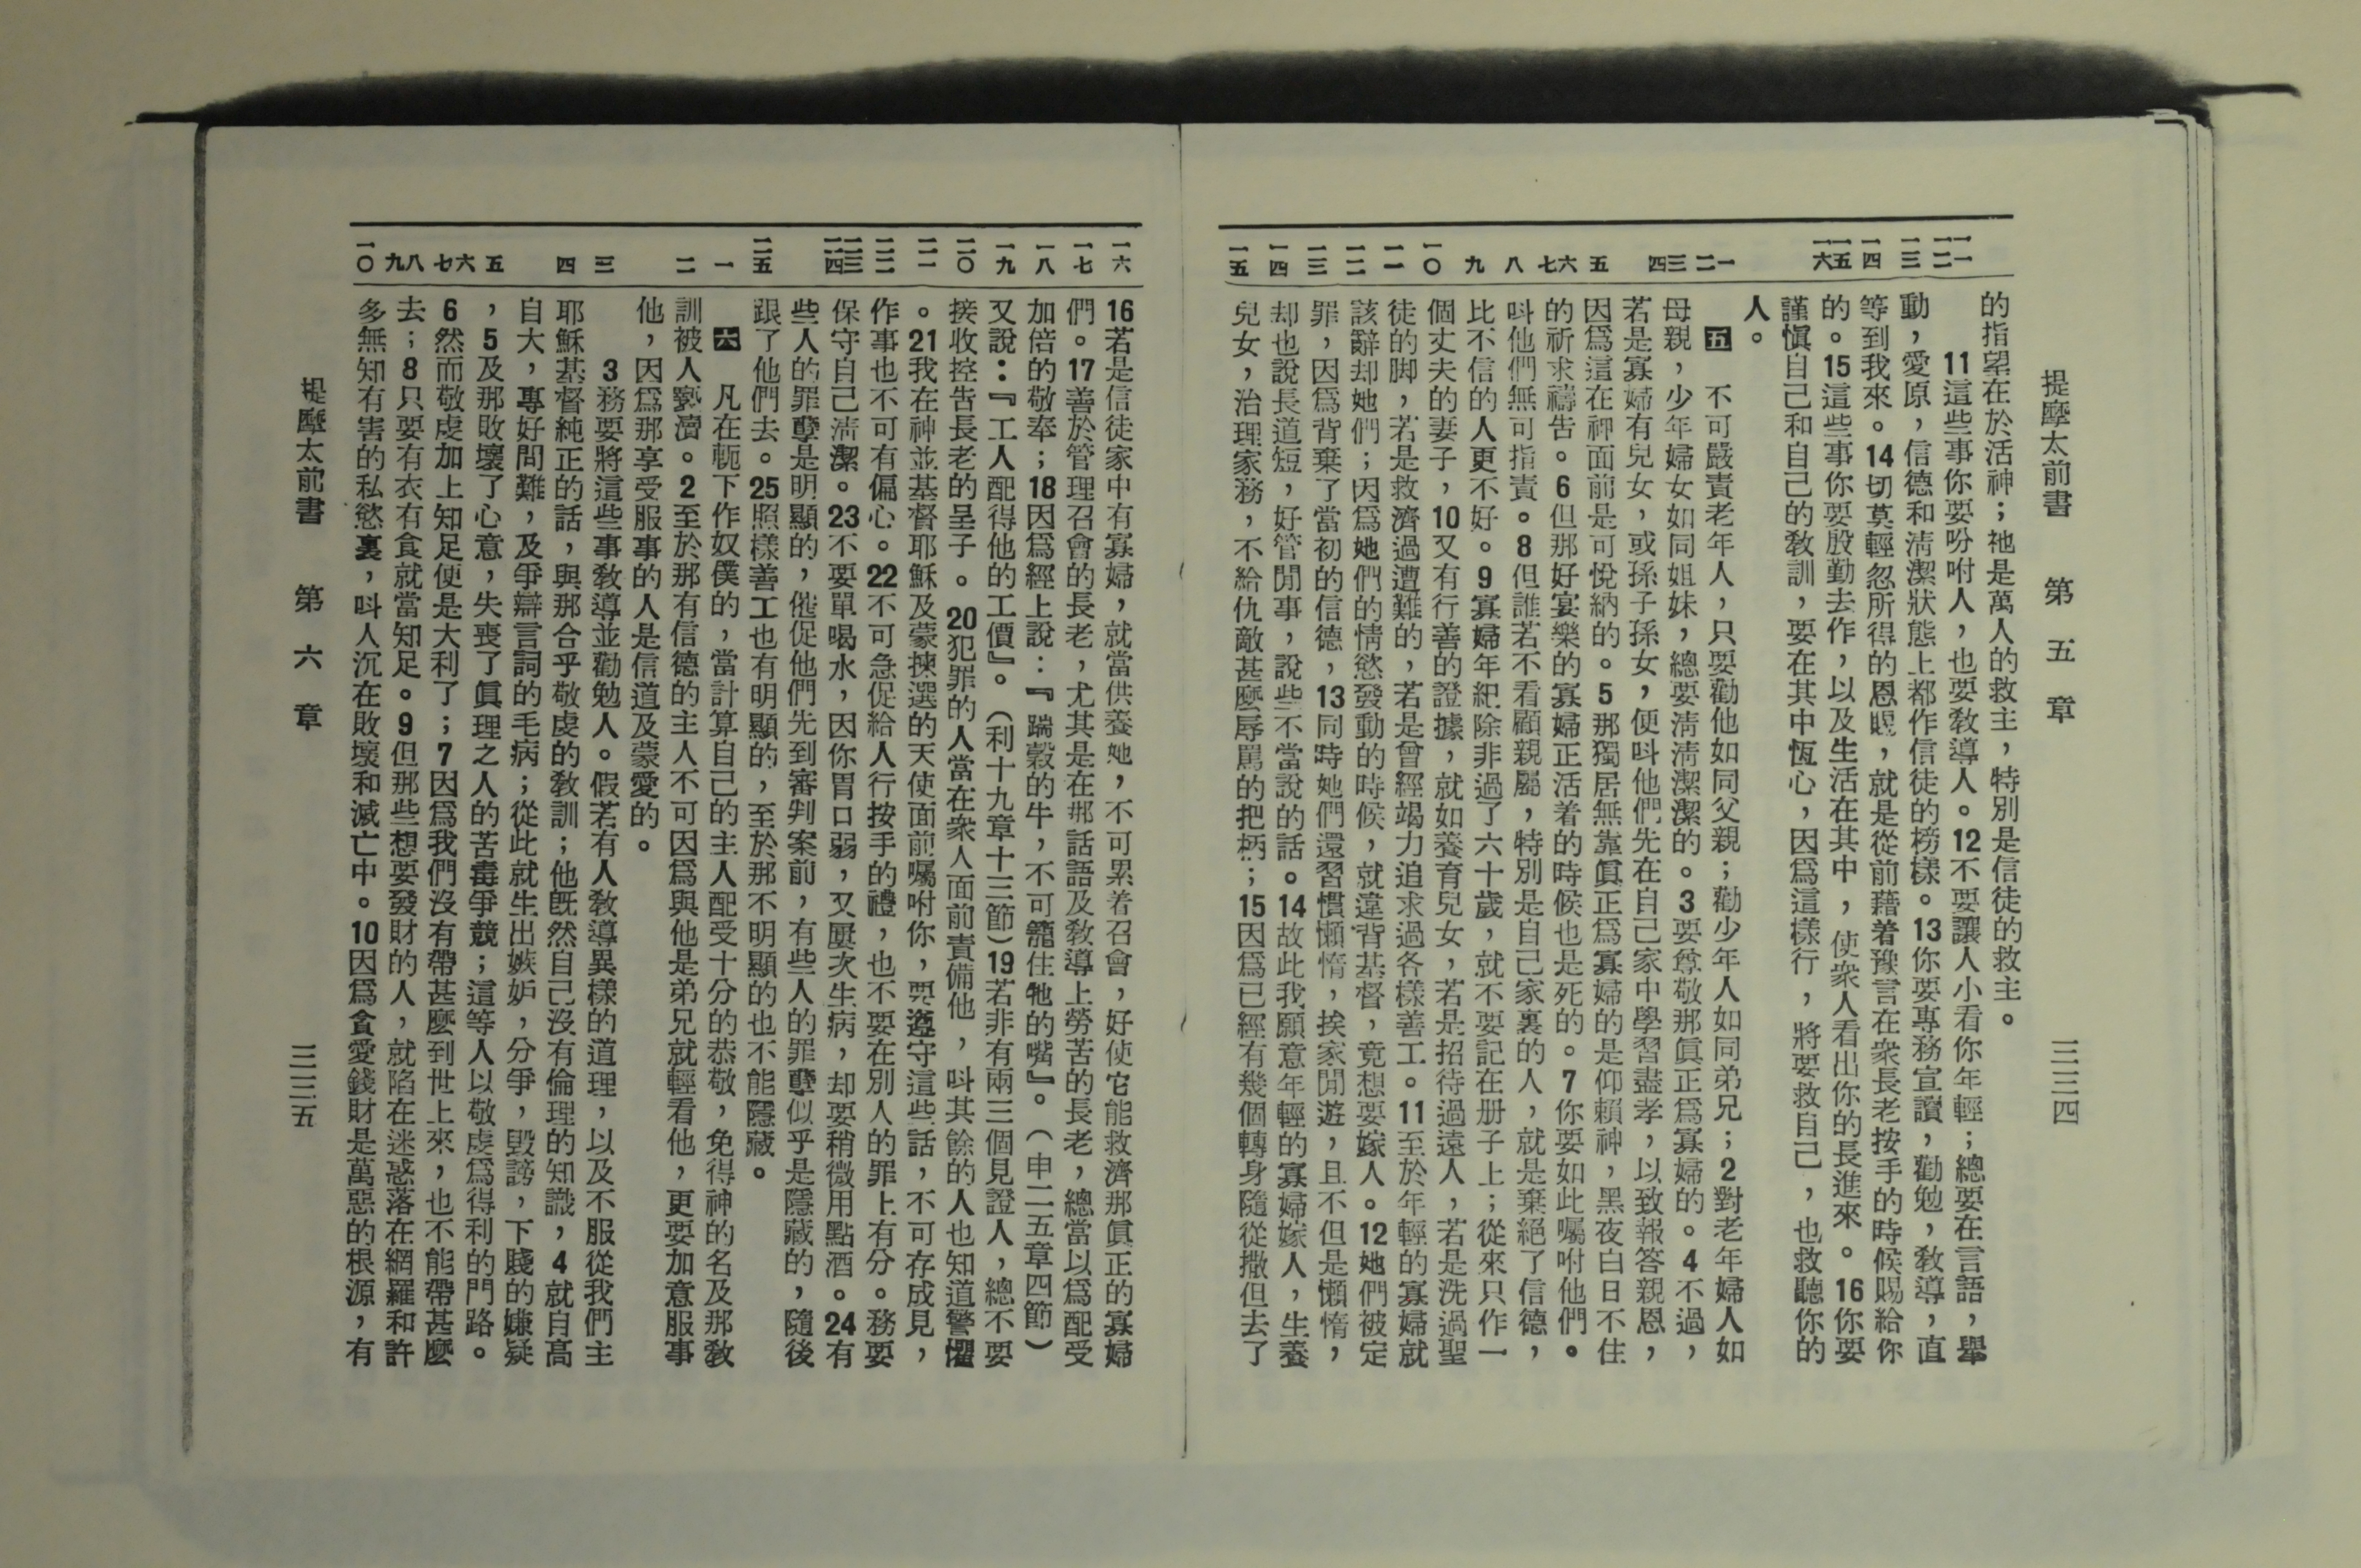 提摩太前書 第五章 三三四
一一 一二 一三 一四 一五 一六 一 二 三 四 五 六 七 八 九 一〇 一一 一二 一三 一四 一五
的指望在於活神；祂是萬人的救主，特別是信徒的救主。
11這些事你要吩咐人，也要敎導人。12不要讓人小看你年輕；總要在言語，舉
動，愛原，信德和清潔狀態上都作信徒的榜樣。13你要專務宣讀，勸勉，敎導，直
等到我來。14切莫輕忽所得的恩賜，就是從前藉着豫言在衆長老按手的時候賜給你
的。15這些事你要殷勤去作，以及生活在其中，使衆人看出你的長進來。16你要
謹愼自己和自己的敎訓，要在其中恆心，因爲這樣行，將要救自己，也救聽你的
人。
五 不可嚴責老年人，只要勸他如同父親；勸少年人如同弟兄；2對老年婦人如
母親，少年婦女如同姐妹，總要清清潔潔的。3要尊敬那眞正爲寡婦的。4不過，
若是寡婦有兒女，或孫子孫女，便叫他們先在自己家中學習盡孝，以致報答親恩，
因爲這在神面前是可悅納的。5那獨居無靠眞正爲寡婦的是仰賴神，黑夜白日不住
的祈求禱告。6但那好宴樂的寡婦正活着的時候也是死的。7你要如此囑咐他們。
叫他們無可指責。8但誰若不看顧親屬，特別是自己家裏的人，就是棄絕了信德，
比不信的人更不好。9寡婦年紀除非過了六十歲，就不要記在册子上；從來只作一
個丈夫的妻子，10又有行善的證據，就如養育兒女，若是招待過遠人，若是洗過聖
徒的脚，若是救濟過遭難的，若是曾經竭力追求過各樣善工。11至於年輕的寡婦就
該辭却她們；因爲她們的情慾發動的時候，就違背基督，竟想要嫁人。12她們被定
罪，因爲背棄了當初的信德，13同時她們還習慣懶惰，挨家閒遊，且不但是懶惰，
却也說長道短，好管閒事，說些不當說的話。14故此我願意年輕的寡婦嫁人，生養
兒女，治理家務，不給仇敵甚麼辱罵的把柄；15因爲已經有幾個轉身隨從撒但去了
一六 一七 一八 一九 二〇 二一 二二 二三 二四 二五 一 二 三 四 五 六 七 八 九 一〇
16若是信徒家中有寡婦，就當供養她，不可累着召會，好使它能救濟那眞正的寡婦
們。17善於管理召會的長老，尤其是在那話語及敎導上勞苦的長老，總當以爲配受
加倍的敬奉；18因爲經上說：『踹穀的牛，不可籠住牠的嘴』。（申二五章四節）
又說：『工人配得他的工價』。（利十九章十三節）19若非有兩三個見證人，總不要
接收控告長老的呈子。20犯罪的人當在衆人面前責備他，叫其餘的人也知道警懼
。21我在神並基督耶穌及蒙揀選的天使面前囑咐你，要遵守這些話，不可存成見，
作事也不可有偏心。22不可急促給人行按手的禮，也不要在別人的罪上有分。務要
保守自己清潔。23不要單喝水，因你胃口弱，又屢次生病，却要稍微用點酒。24有
些人的罪孽是明顯的，催促他們先到審判案前，有些人的罪孽似乎是隱藏的，隨後
跟了他們去。25照樣善工也有明顯的，至於那不明顯的也不能隱藏。
六 凡在軛下作奴僕的，當計算自己的主人配受十分的恭敬，免得神的名及那敎
訓被人褻瀆。2至於那有信德的主人不可因爲與他是弟兄就輕看他，更要加意服事
他，因爲那享受服事的人是信道及蒙愛的。
3務要將這些事敎導並勸勉人。假若有人敎導異樣的道理，以及不服從我們主
耶穌基督純正的話，與那合乎敬虔的敎訓；他旣然自己沒有倫理的知識，4就自高
自大，專好問難，及爭辯言詞的毛病；從此就生出嫉妒，分爭，毀謗，下賤的嫌疑
，5及那敗壞了心意，失喪了眞理之人的苦毒爭競；這等人以敬虔爲得利的門路。
6然而敬虔加上知足便是大利了；7因爲我們沒有帶甚麼到世上來，也不能帶甚麼
去；8只要有衣有食就當知足。9但那些想要發財的人，就陷在迷惑落在網羅和許
多無知有害的私慾裏，叫人沉在敗壞和滅亡中。10因爲貪愛錢財是萬惡的根源，有
提摩太前書 第六章 三三五